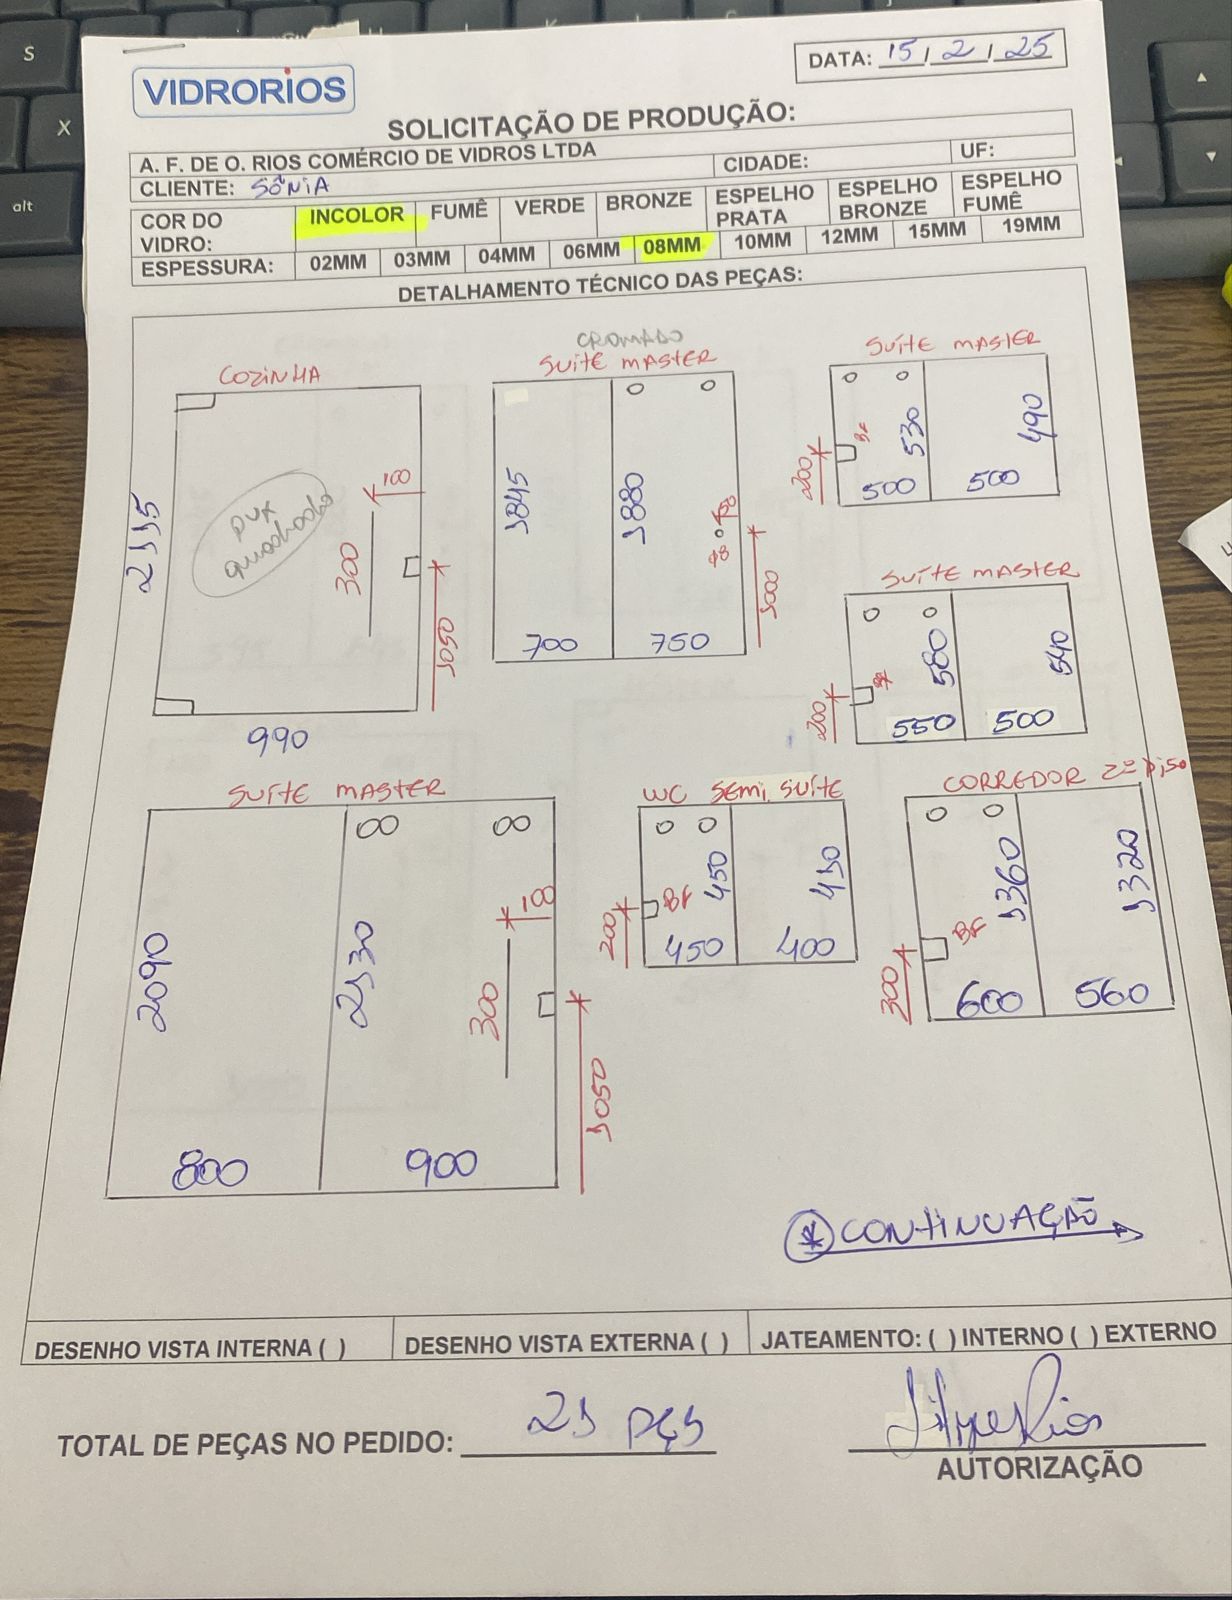 VIDRORIOS
DATA: 15 / 2 / 25
SOLICITAÇÃO DE PRODUÇÃO:
A. F. DE O. RIOS COMÉRCIO DE VIDROS LTDA
CIDADE:
UF:
CLIENTE: SÔNIA
COR DO VIDRO:
INCOLOR
FUMÊ
VERDE
BRONZE
ESPELHO PRATA
ESPELHO BRONZE
ESPELHO FUMÊ
ESPESSURA:
02MM
03MM
04MM
06MM
08MM
10MM
12MM
15MM
19MM
DETALHAMENTO TÉCNICO DAS PEÇAS:
COZINHA
2115
PUX
quadrado
100
300
1050
990
CROMADO
SUÍTE MASTER
1845
1880
50
1000
700
750
SUÍTE MASTER
BF
530
490
200
500
500
SUÍTE MASTER
580
540
BF
200
550
500
SUÍTE MASTER
2090
2130
100
300
1050
800
900
WC SEMI. SUÍTE
450
410
BF
200
450
400
CORREDOR 2º piso
1360
1320
BF
300
600
560
* CONTINUAÇÃO
DESENHO VISTA INTERNA ( )
DESENHO VISTA EXTERNA ( )
JATEAMENTO: ( ) INTERNO ( ) EXTERNO
TOTAL DE PEÇAS NO PEDIDO: 21 PÇS
AUTORIZAÇÃO
S
X
alt